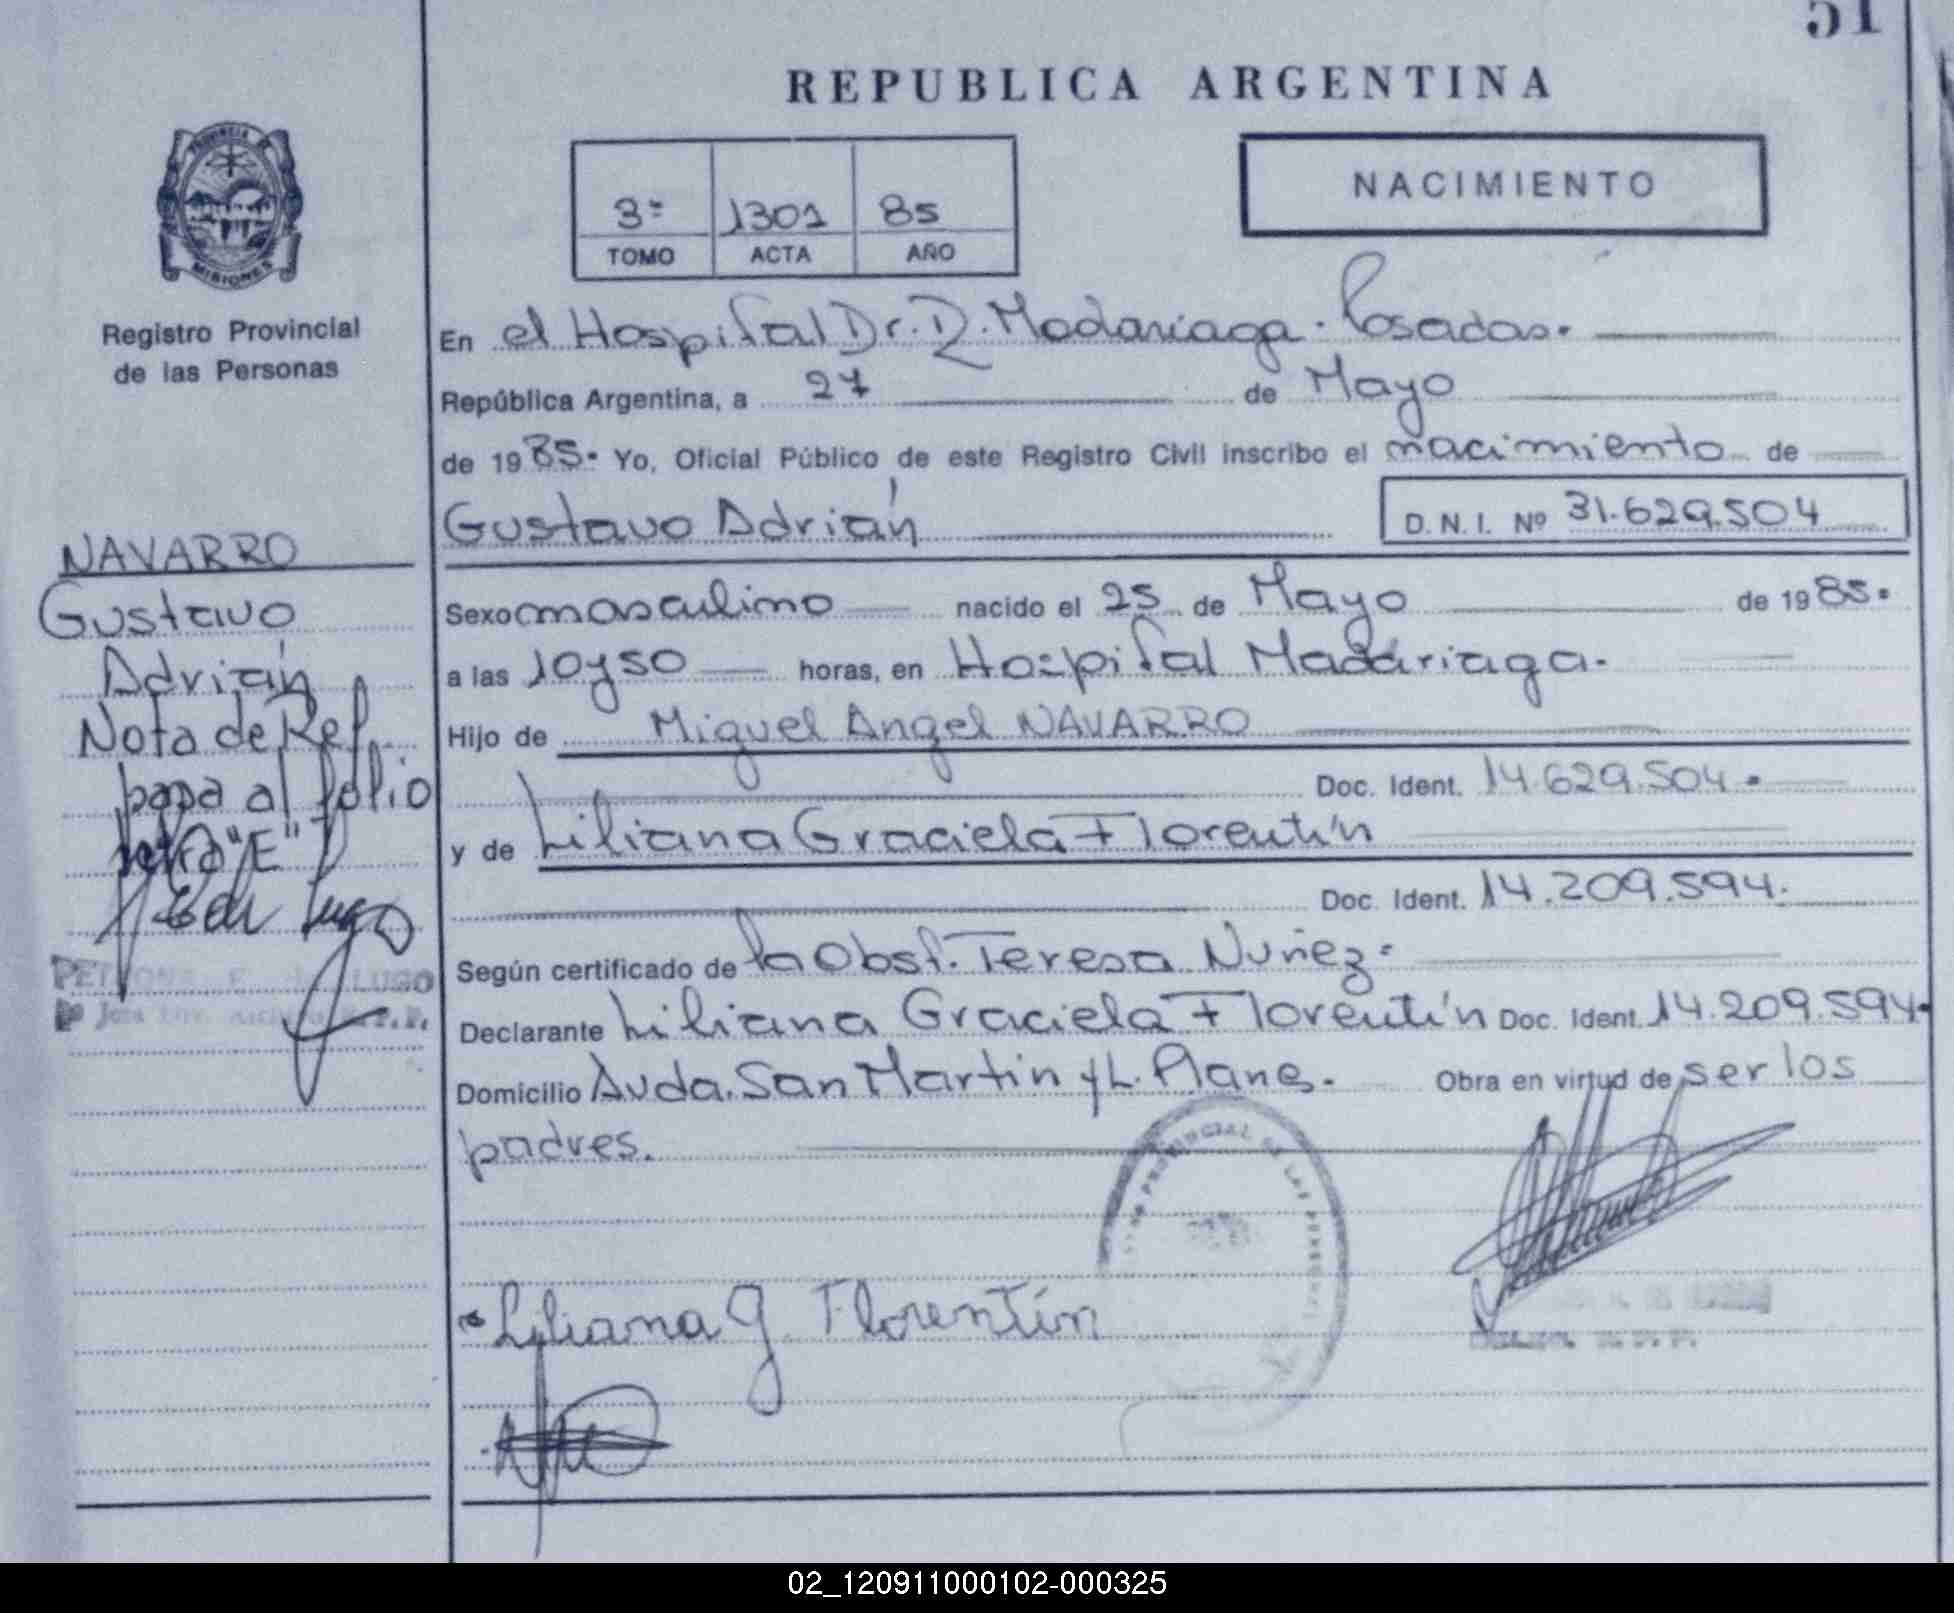 51
REPUBLICA ARGENTINA
PROVINCIA DE
MISIONES
Registro Provincial
de las Personas
3º 1301 85
TOMO ACTA AÑO
NACIMIENTO
En el Hospital Dr. R. Madariaga. Posadas.
República Argentina, a 27 de Mayo
de 1985. Yo, Oficial Público de este Registro Civil inscribo el nacimiento de
Gustavo Adrián D.N.I. Nº 31.629.504
NAVARRO
Gustavo
Adrián
Nota de Ref.
papa al folio
letra "E"
PETRONA E. de LUGO
R.P.P.
Sexo masculino nacido el 25 de Mayo de 1985.
a las 10y50 horas, en Hospital Madariaga.
Hijo de Miguel Angel NAVARRO
Doc. Ident. 14.629.504.
y de Liliana Graciela Florentín
Doc. Ident. 14.209.594.
Según certificado de la Obst. Teresa Nuñez.
Declarante Liliana Graciela Florentín Doc. Ident. 14.209.594.
Domicilio Avda. San Martín y L. Plane. Obra en virtud de ser los
padres.
PROVINCIAL DE LAS PERSONAS
Liliana G Florentín
02_120911000102-000325